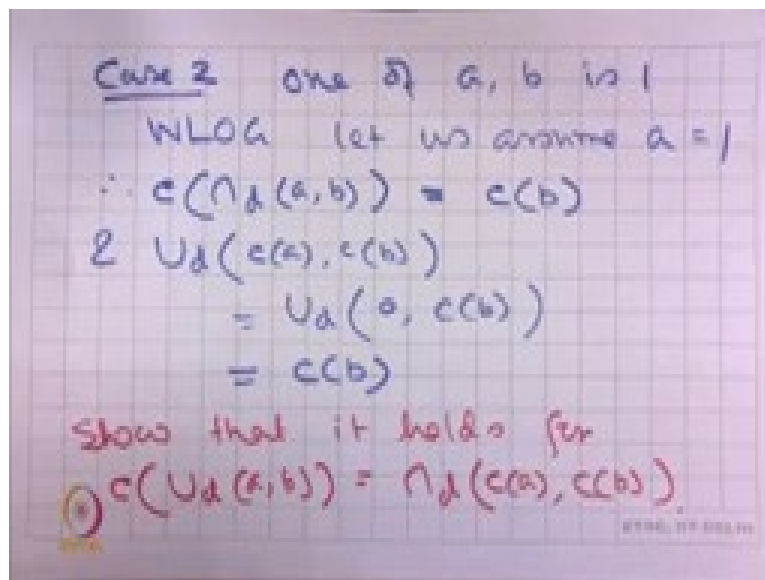 Case 2 one of a, b is 1
WLOG let us assume a = 1
∴ c(∩d(a,b)) = c(b)
& Ud(c(a), c(b))
= Ud(0, c(b))
= c(b)
Show that it holds for
c(Ud(a,b)) = ∩d(c(a), c(b)).
ETSC, IIT DELHI